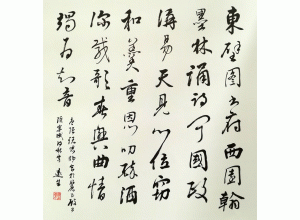 東壁圖書府西園翰
墨林誦詩聞國政
講易天見心位竊
和羹重恩叨醉酒
深載歌春興曲情
竭為知音